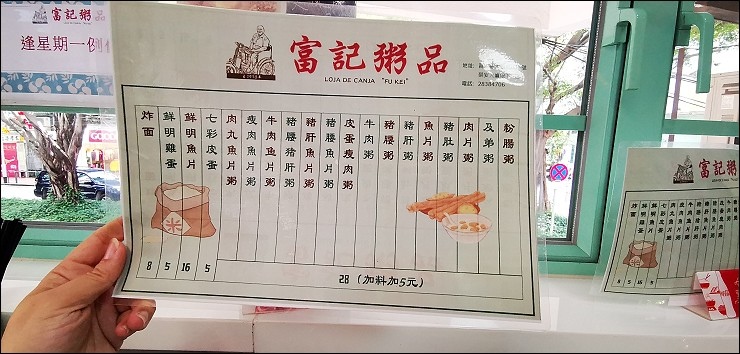 富記粥品
逢星期一例
富記粥品
LOJA DE CANJA "FU KEI"
電話: 28384706
粉腸粥
及弟粥
肉片粥
豬肚粥
魚片粥
豬肝粥
豬腰粥
牛肉粥
皮蛋瘦肉粥
豬腰魚片粥
豬肝魚片粥
豬腰豬肝粥
牛肉魚片粥
瘦肉魚片粥
肉丸魚片粥
七彩皮蛋
鮮明魚片
鮮明雞蛋
炸面
米
8 5 16 5 28 (加料加5元)
富記粥